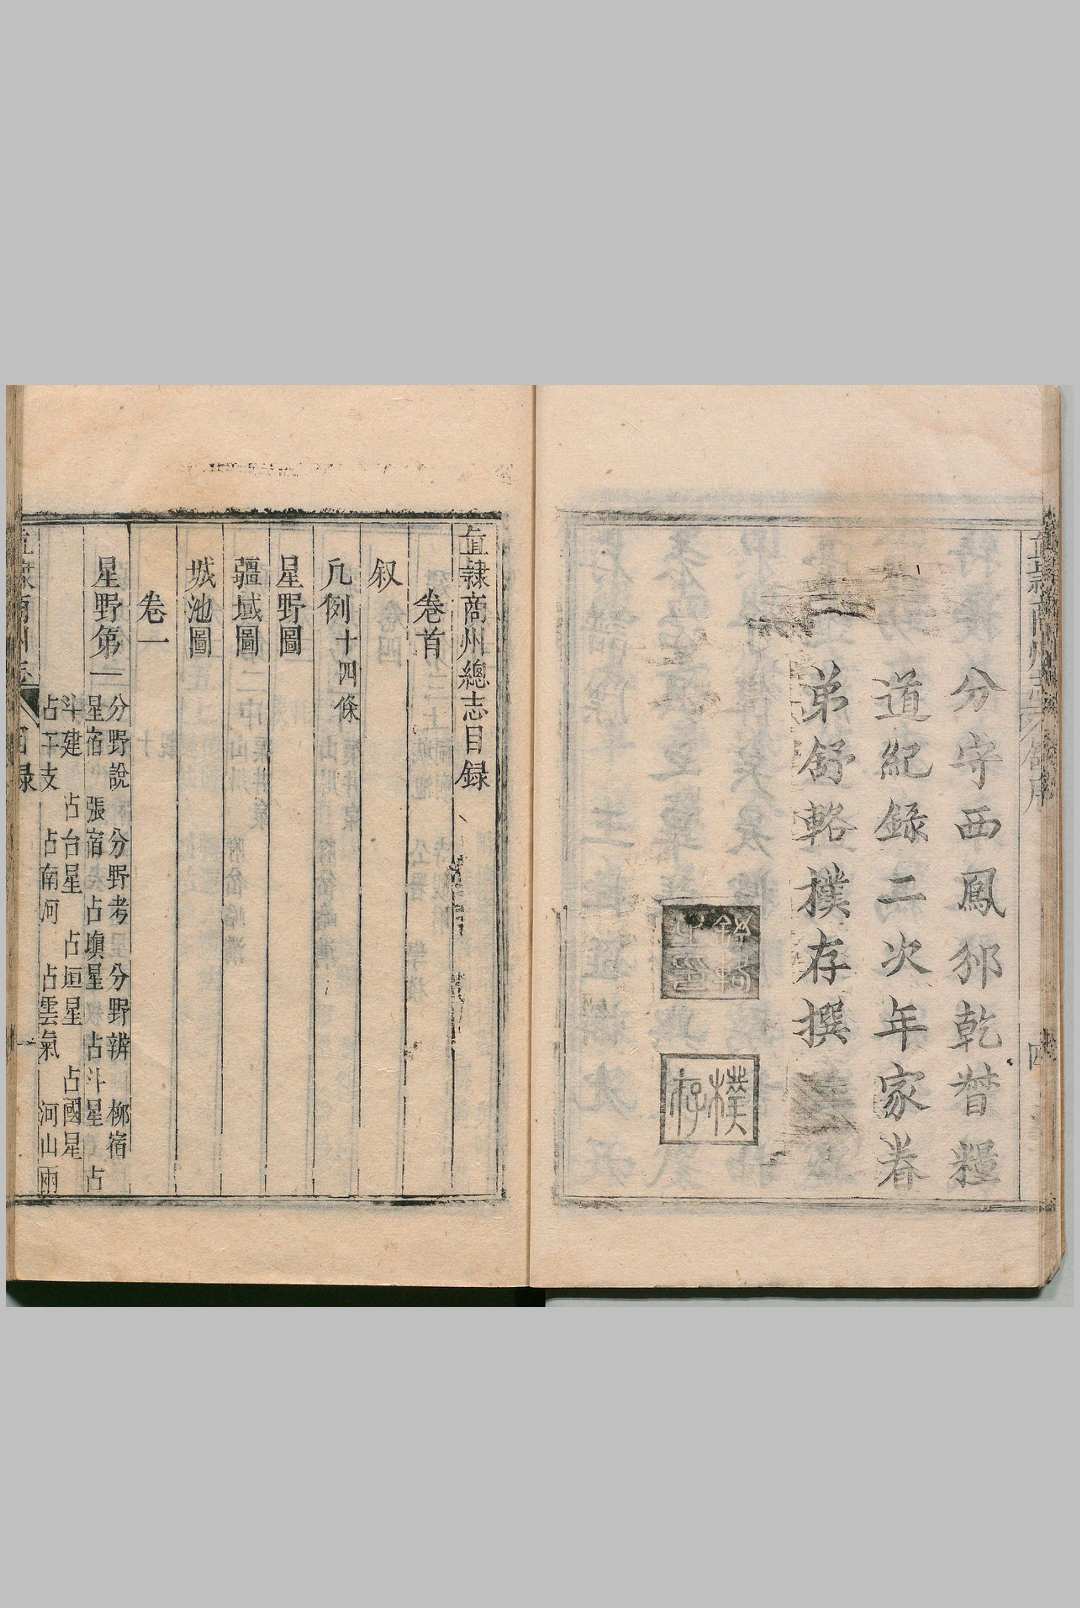 分守西鳳邠乾督糧
道紀錄二次年家眷
弟舒輅樸存撰
樸存
直隸商州總志目録
卷首
叙
凡例十四條
星野圖
疆域圖
城池圖
卷一
星野第一
分野說 分野考 分野辨 柳宿
星宿 張宿 占填星 占斗星 占
斗建 占台星 占垣星 占國星
占干支 占南河 占雲氣 河山兩